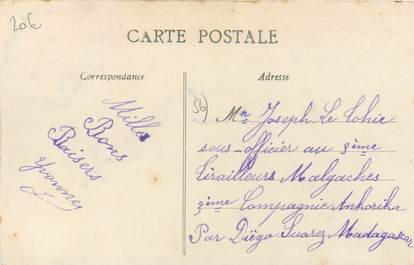 20€
CARTE POSTALE
Correspondance
Adresse
56)
Mille
Bons
Baisers
Yvonne
Mr Joseph Le Lohic
sous-officier au 3ème
tirailleurs Malgaches
3ème Compagnie Anhorika
Par Diégo Suarez Madagascar